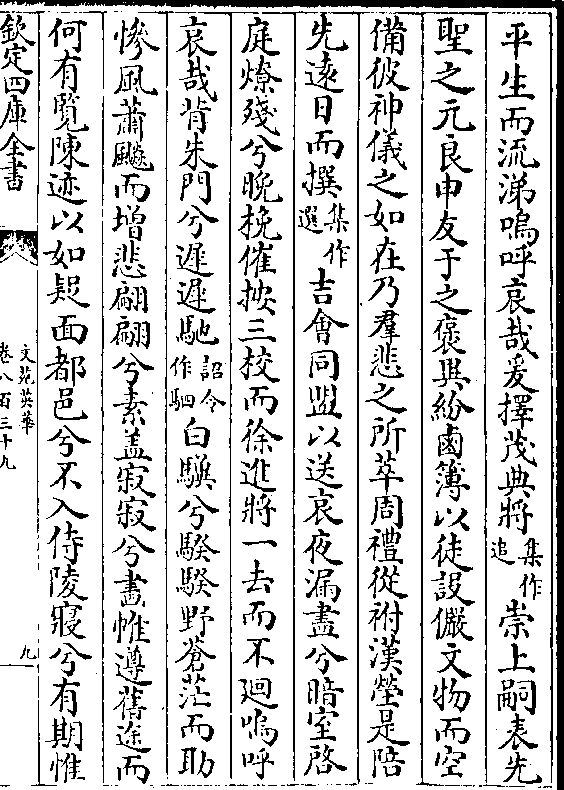 平生而流涕嗚呼哀哉爰擇茂典將集作追崇上嗣表先
聖之元良申友于之褒異紛鹵簿以徒設儼文物而空
備彼神儀之如在乃羣悲之所萃周禮從祔漢塋是陪
先遠日而撰集作選吉會同盟以送哀夜漏盡兮暗室啓
庭燎殘兮晚挽催按三校而徐進將一去而不迴嗚呼
哀哉背朱門兮遲遲馳詔令作駟白驥兮騤騤野蒼茫而助
慘風蕭飈而增悲翩翩兮素蓋寂寂兮畫帷遵舊途而
何有覽陳迹以如疑面都邑兮不入侍陵寢兮有期惟
欽定四庫全書
文苑英華
卷八百三十九
九